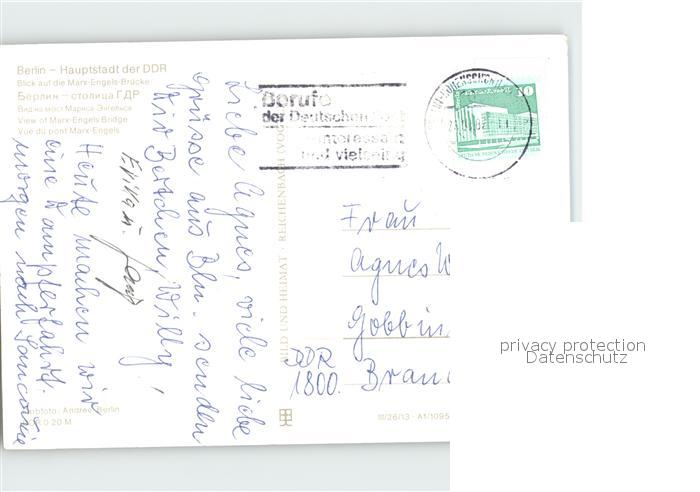 Berlin – Hauptstadt der DDR
Blick auf die Marx-Engels-Brücke
Берлин – столица ГДР
Вид на мост Маркса-Энгельса
View of Marx-Engels Bridge
Vue du pont Marx-Engels
Berufe
der Deutschen Post
interessant
und vielseitig
10
Liebe Agnes, viele liebe
Grüsse aus Bln. senden
Wir Willy!
Heute machen wir
eine Dampferfahrt.
morgen nach Sanssouci
BILD UND HEIMAT · REICHENBACH (VOG
Frau
Agnes W
Gobbin
DDR
1800. Bran
Berlin
0 20 M
III/26/13 · A1/1095
privacy protection
Datenschutz